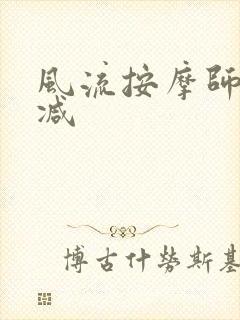 風流按摩師
減
博古什勞斯基